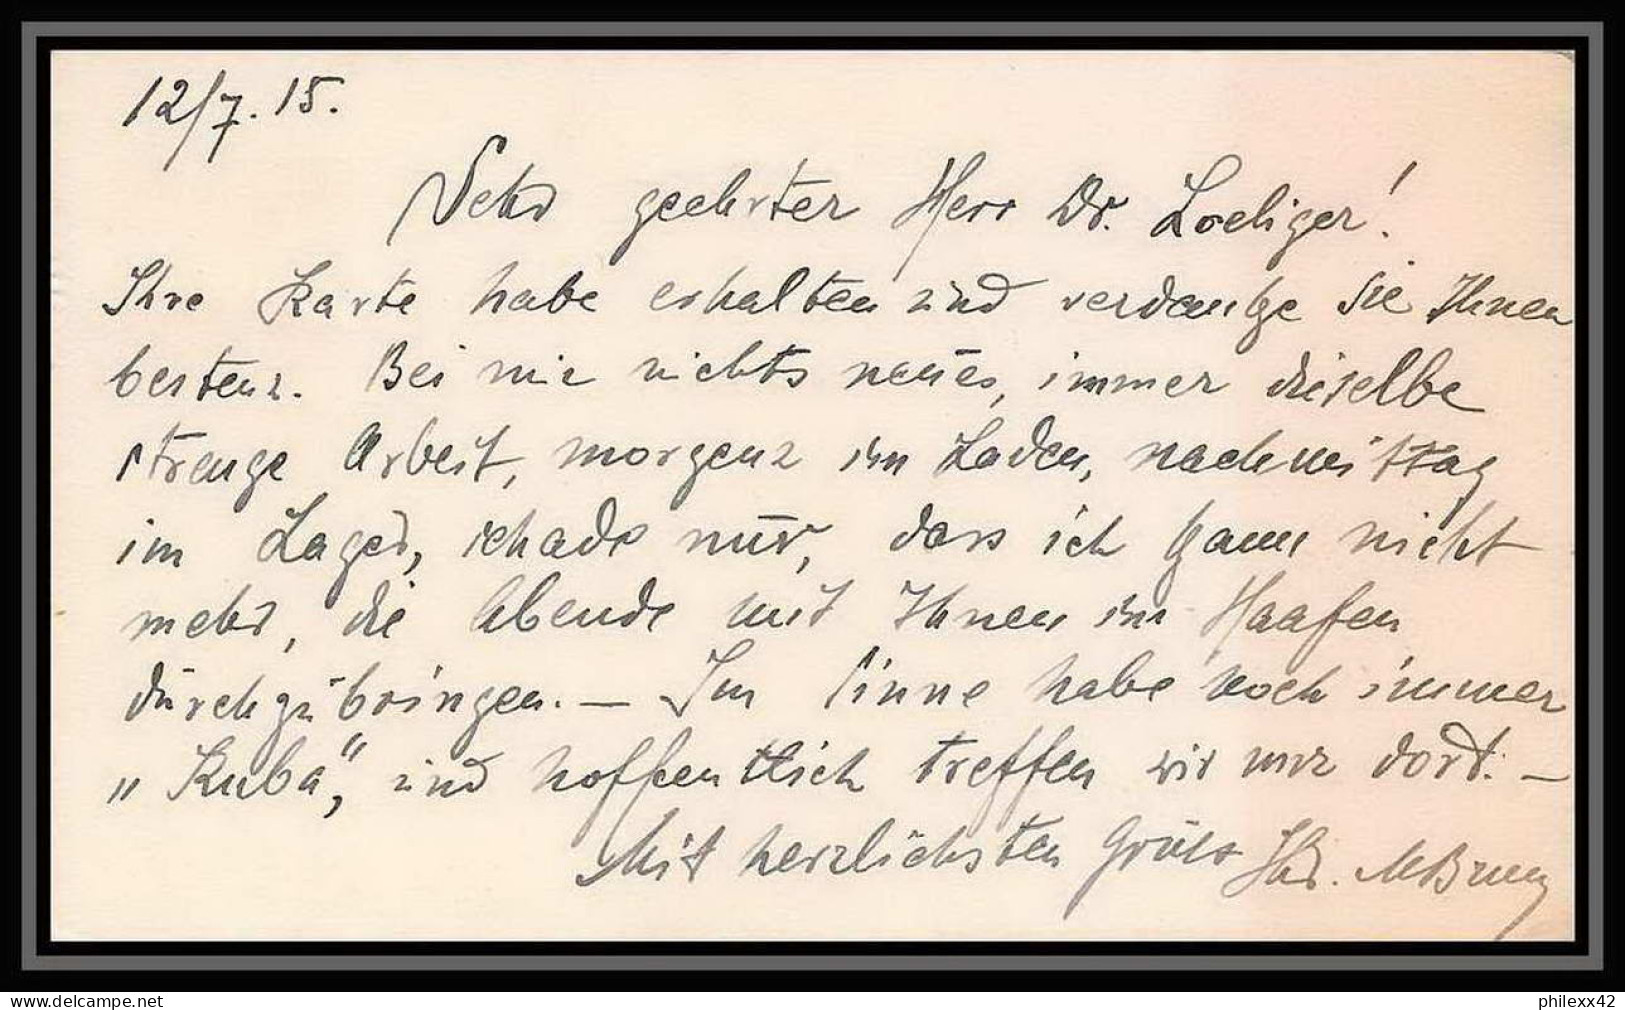 12/7. 15.
Sehr geehrter Herr Dr. Loeliger!
Ihre Karte habe erhalten und verdanke sie Ihnen
bestens. Bei mir nichts neues, immer dieselbe
strenge Arbeit, morgens im Laden, nachmittag
im Lager, schade nur, dass ich kann nicht
mehr, die Abende mit Ihnen im Haafen
durchzubringen. — Im Sinne habe noch immer
„Kuba“, und hoffentlich treffen wir uns dort. —
Mit herzlichsten Gruss Ihr.
www.delcampe.net philexx42